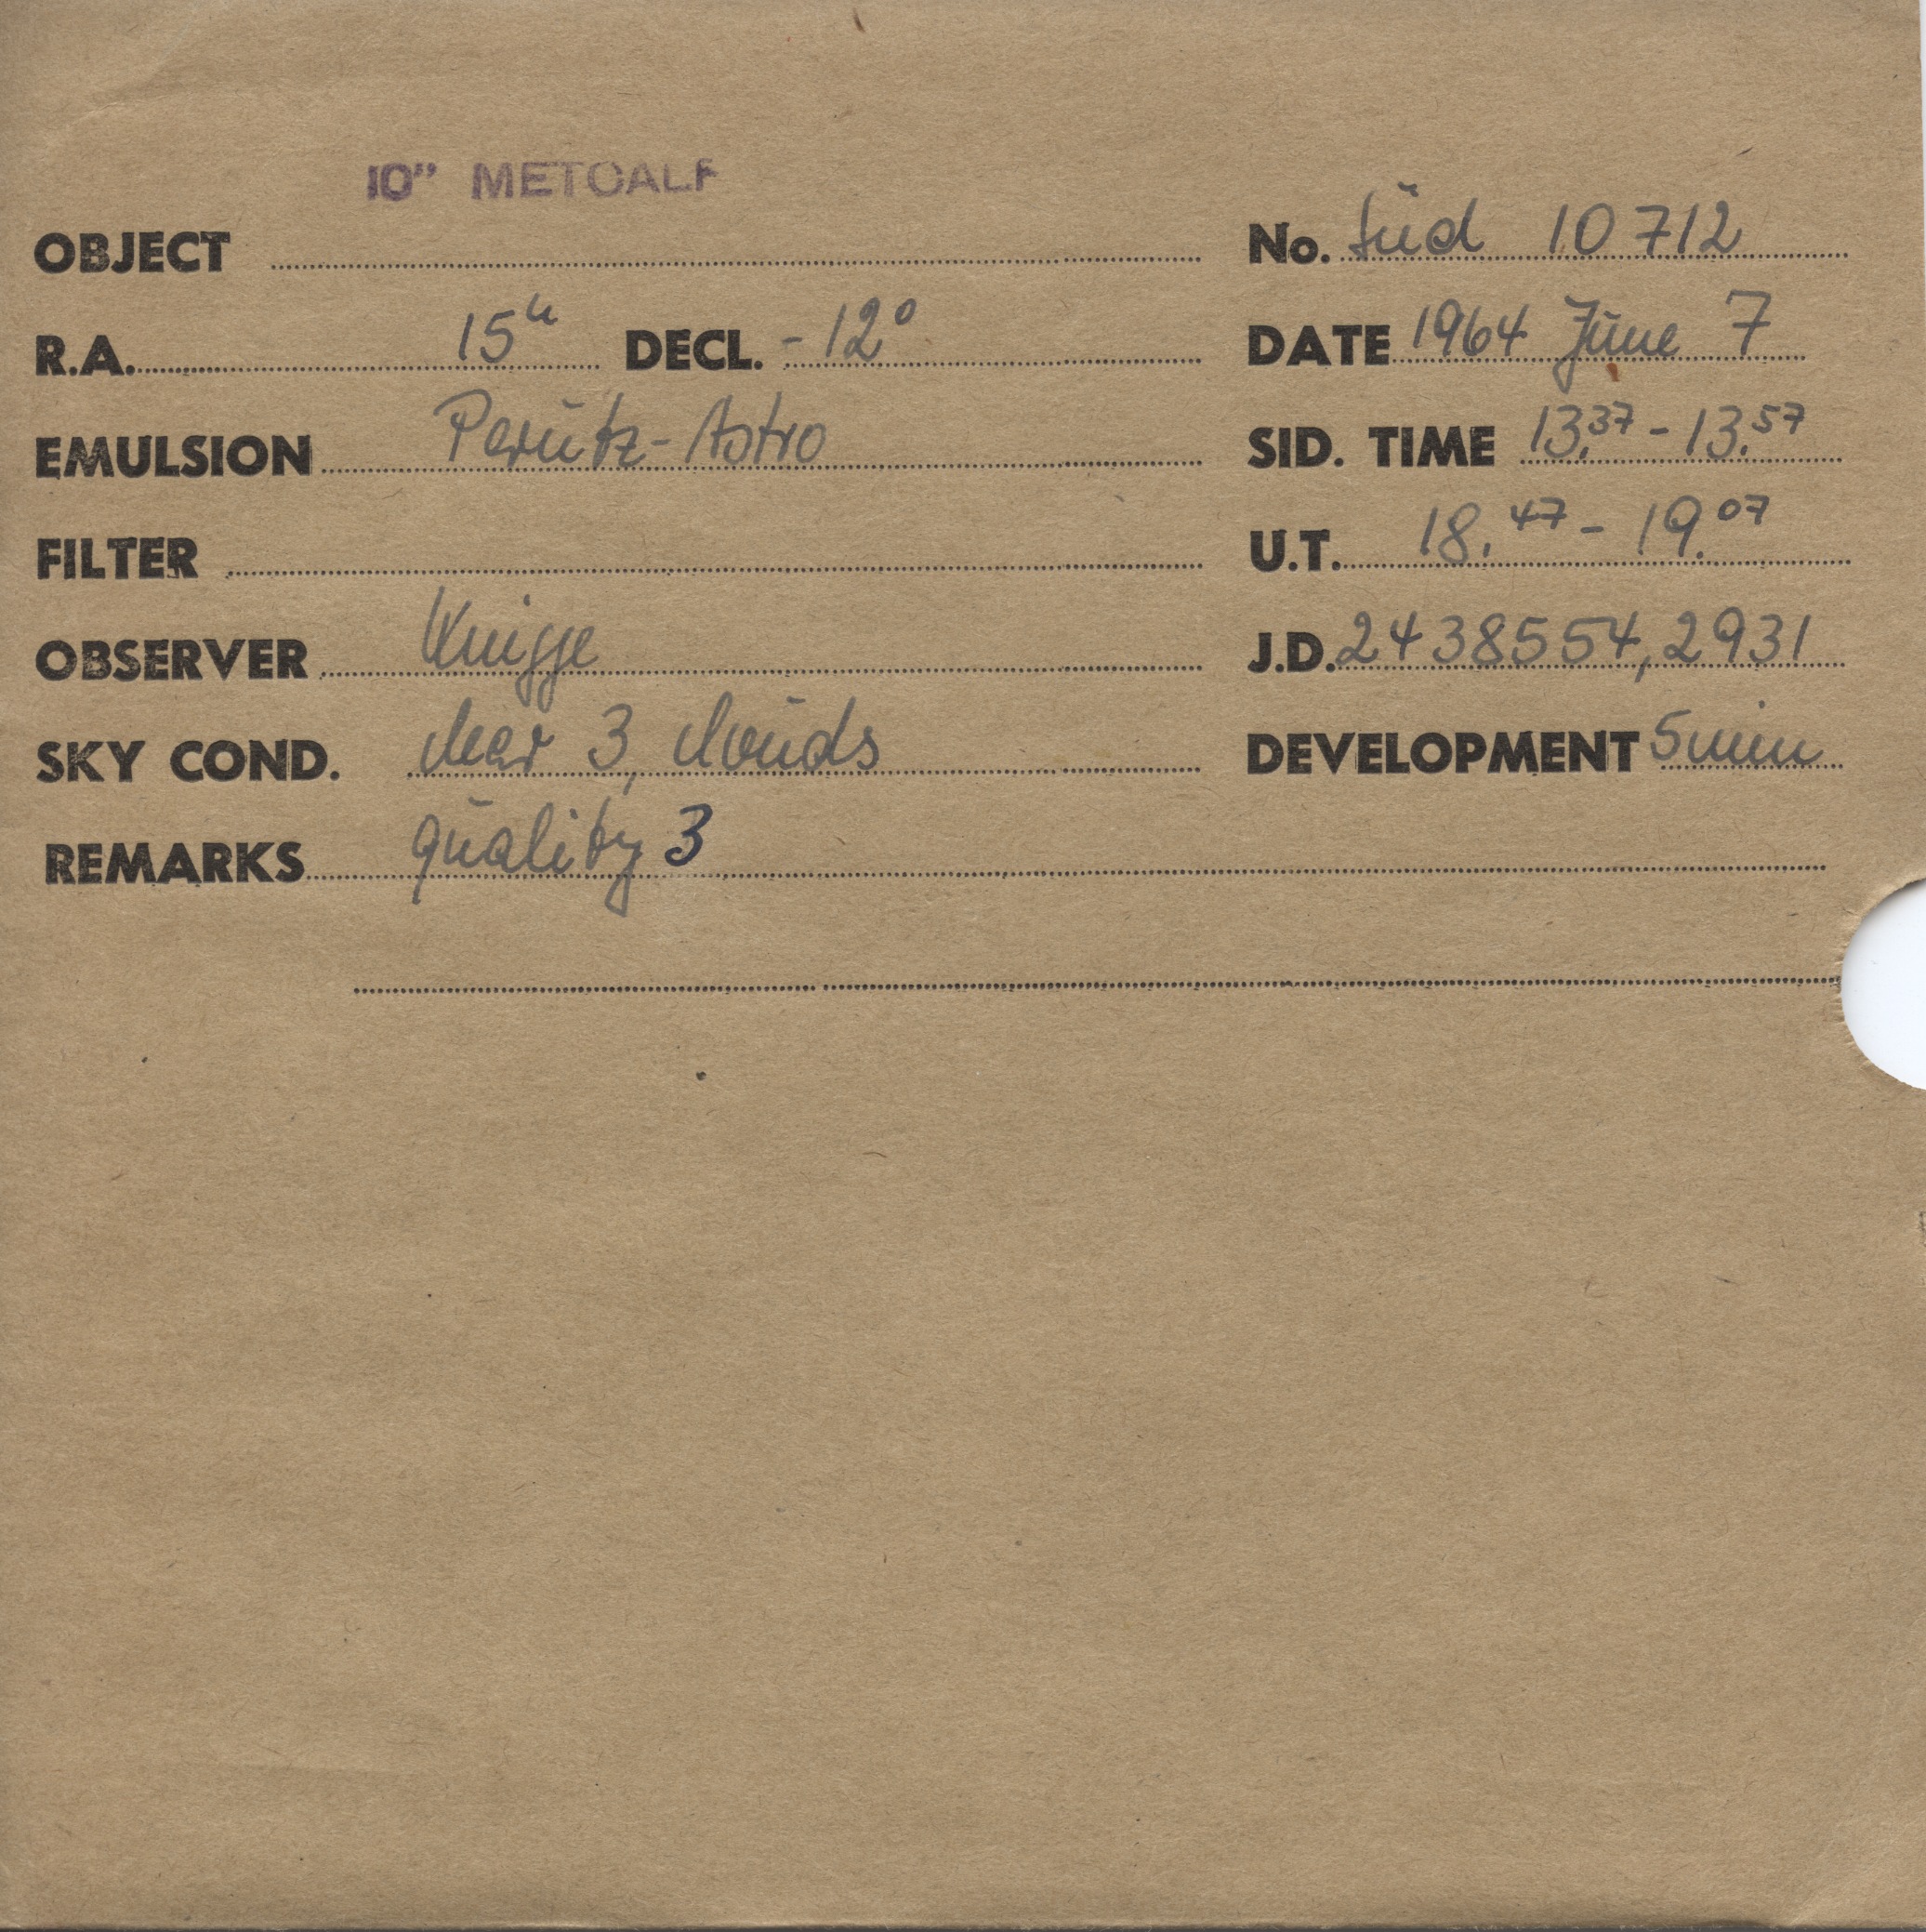 10" METCALF
OBJECT No. Süd 10712
R.A. 15h DECL. -12° DATE 1964 June 7
EMULSION Perutz-Astro SID. TIME 13.37 - 13.57
FILTER U.T. 18.47 - 19.07
OBSERVER Knigge J.D. 2438554,2931
SKY COND. clear 3, clouds DEVELOPMENT 5min
REMARKS quality 3